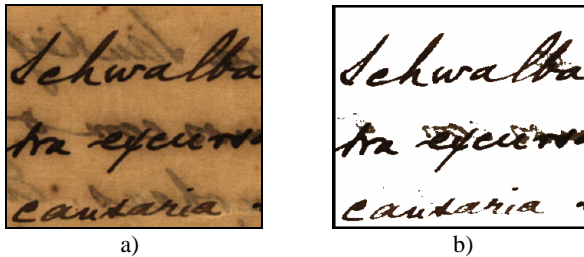 Schwalba
tra excurso
causaria
Schwalba
tra excurso
causaria
a)
b)